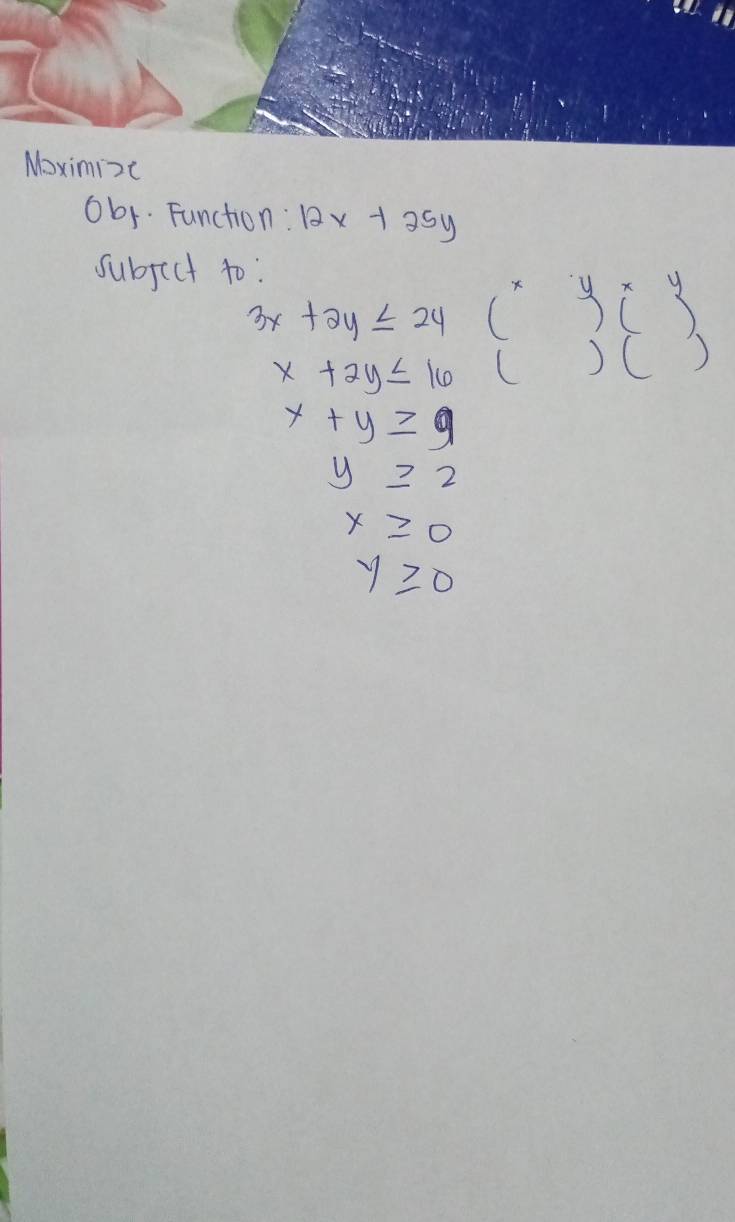 Maximize
Obj. Function: 12x + 25y
subject to:
3x + 2y ≤ 24 (x y) (x y)
x + 2y ≤ 16 ( ) ( )
x + y ≥ 9
y ≥ 2
x ≥ 0
y ≥ 0